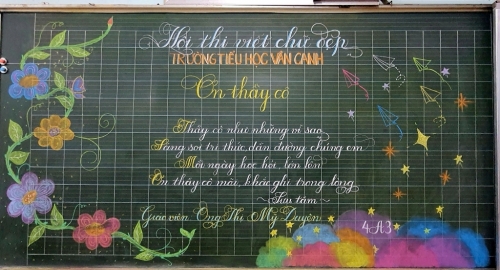 Hội thi viết chữ đẹp
TRƯỜNG TIỂU HỌC VÂN CANH
Ơn thầy cô
Thầy cô như những vì sao
Sáng soi tri thức, dẫn đường chúng em
Mỗi ngày học hỏi, lớn lên
Ơn thầy cô mãi, khắc ghi trong lòng
~ Sưu tầm ~
Giáo viên: Ông Thị Mỹ Duyên
4A3